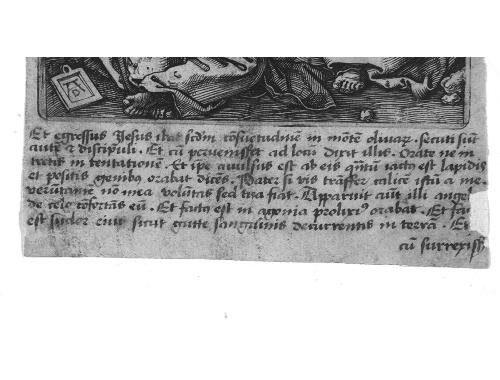 Et egressus Jesus ibat scdm cōsuetudinē in mōtē olivarꝝ. secuti sūt
autē & discipuli. Et cū pervenisset ad locū dixit illis. Orate ne in
tretis in tentationē. Et ipe avulsus est ab eis qntū iactꝰ est lapidis
et positis genibꝰ orabat dicēs. Pater si vis trāsfer calicē istū a me.
verūtamē nō mea volūtas sed tua fiat. Apparuit aūt illi angel
de celo cōfortās eū. Et factꝰ est in agonia prolixiꝰ orabat. Et fac
est sudor eiuꝰ sicut gutte sanguinis decurrentis in terrā. Et
cū surrexiss